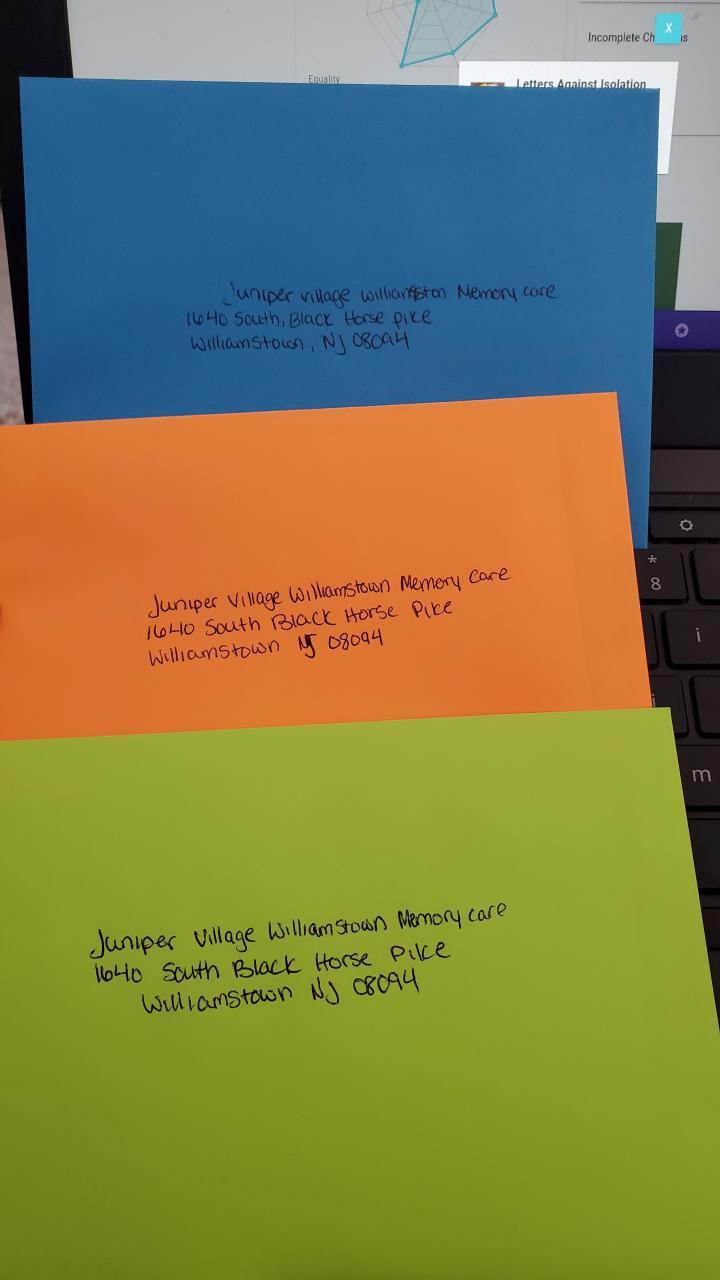 Incomplete Ch
ns
X
Equality
Letters Against Isolation
Juniper village williamston Memory care
1640 South, Black Horse pike
Williamstown, NJ 08094
Juniper Village Williamstown Memory Care
1640 South Black Horse Pike
Williamstown NJ 08094
Juniper Village Williamstown Memory care
1640 South Black Horse Pike
Williamstown NJ 08094
*
8
i
m